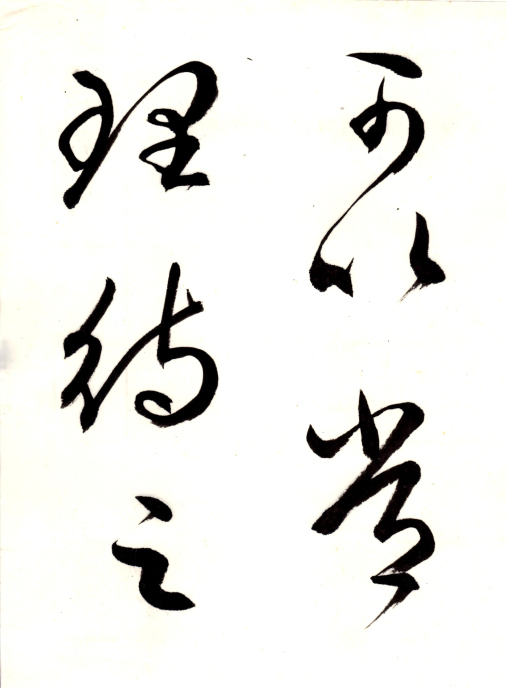 可以常
理待之